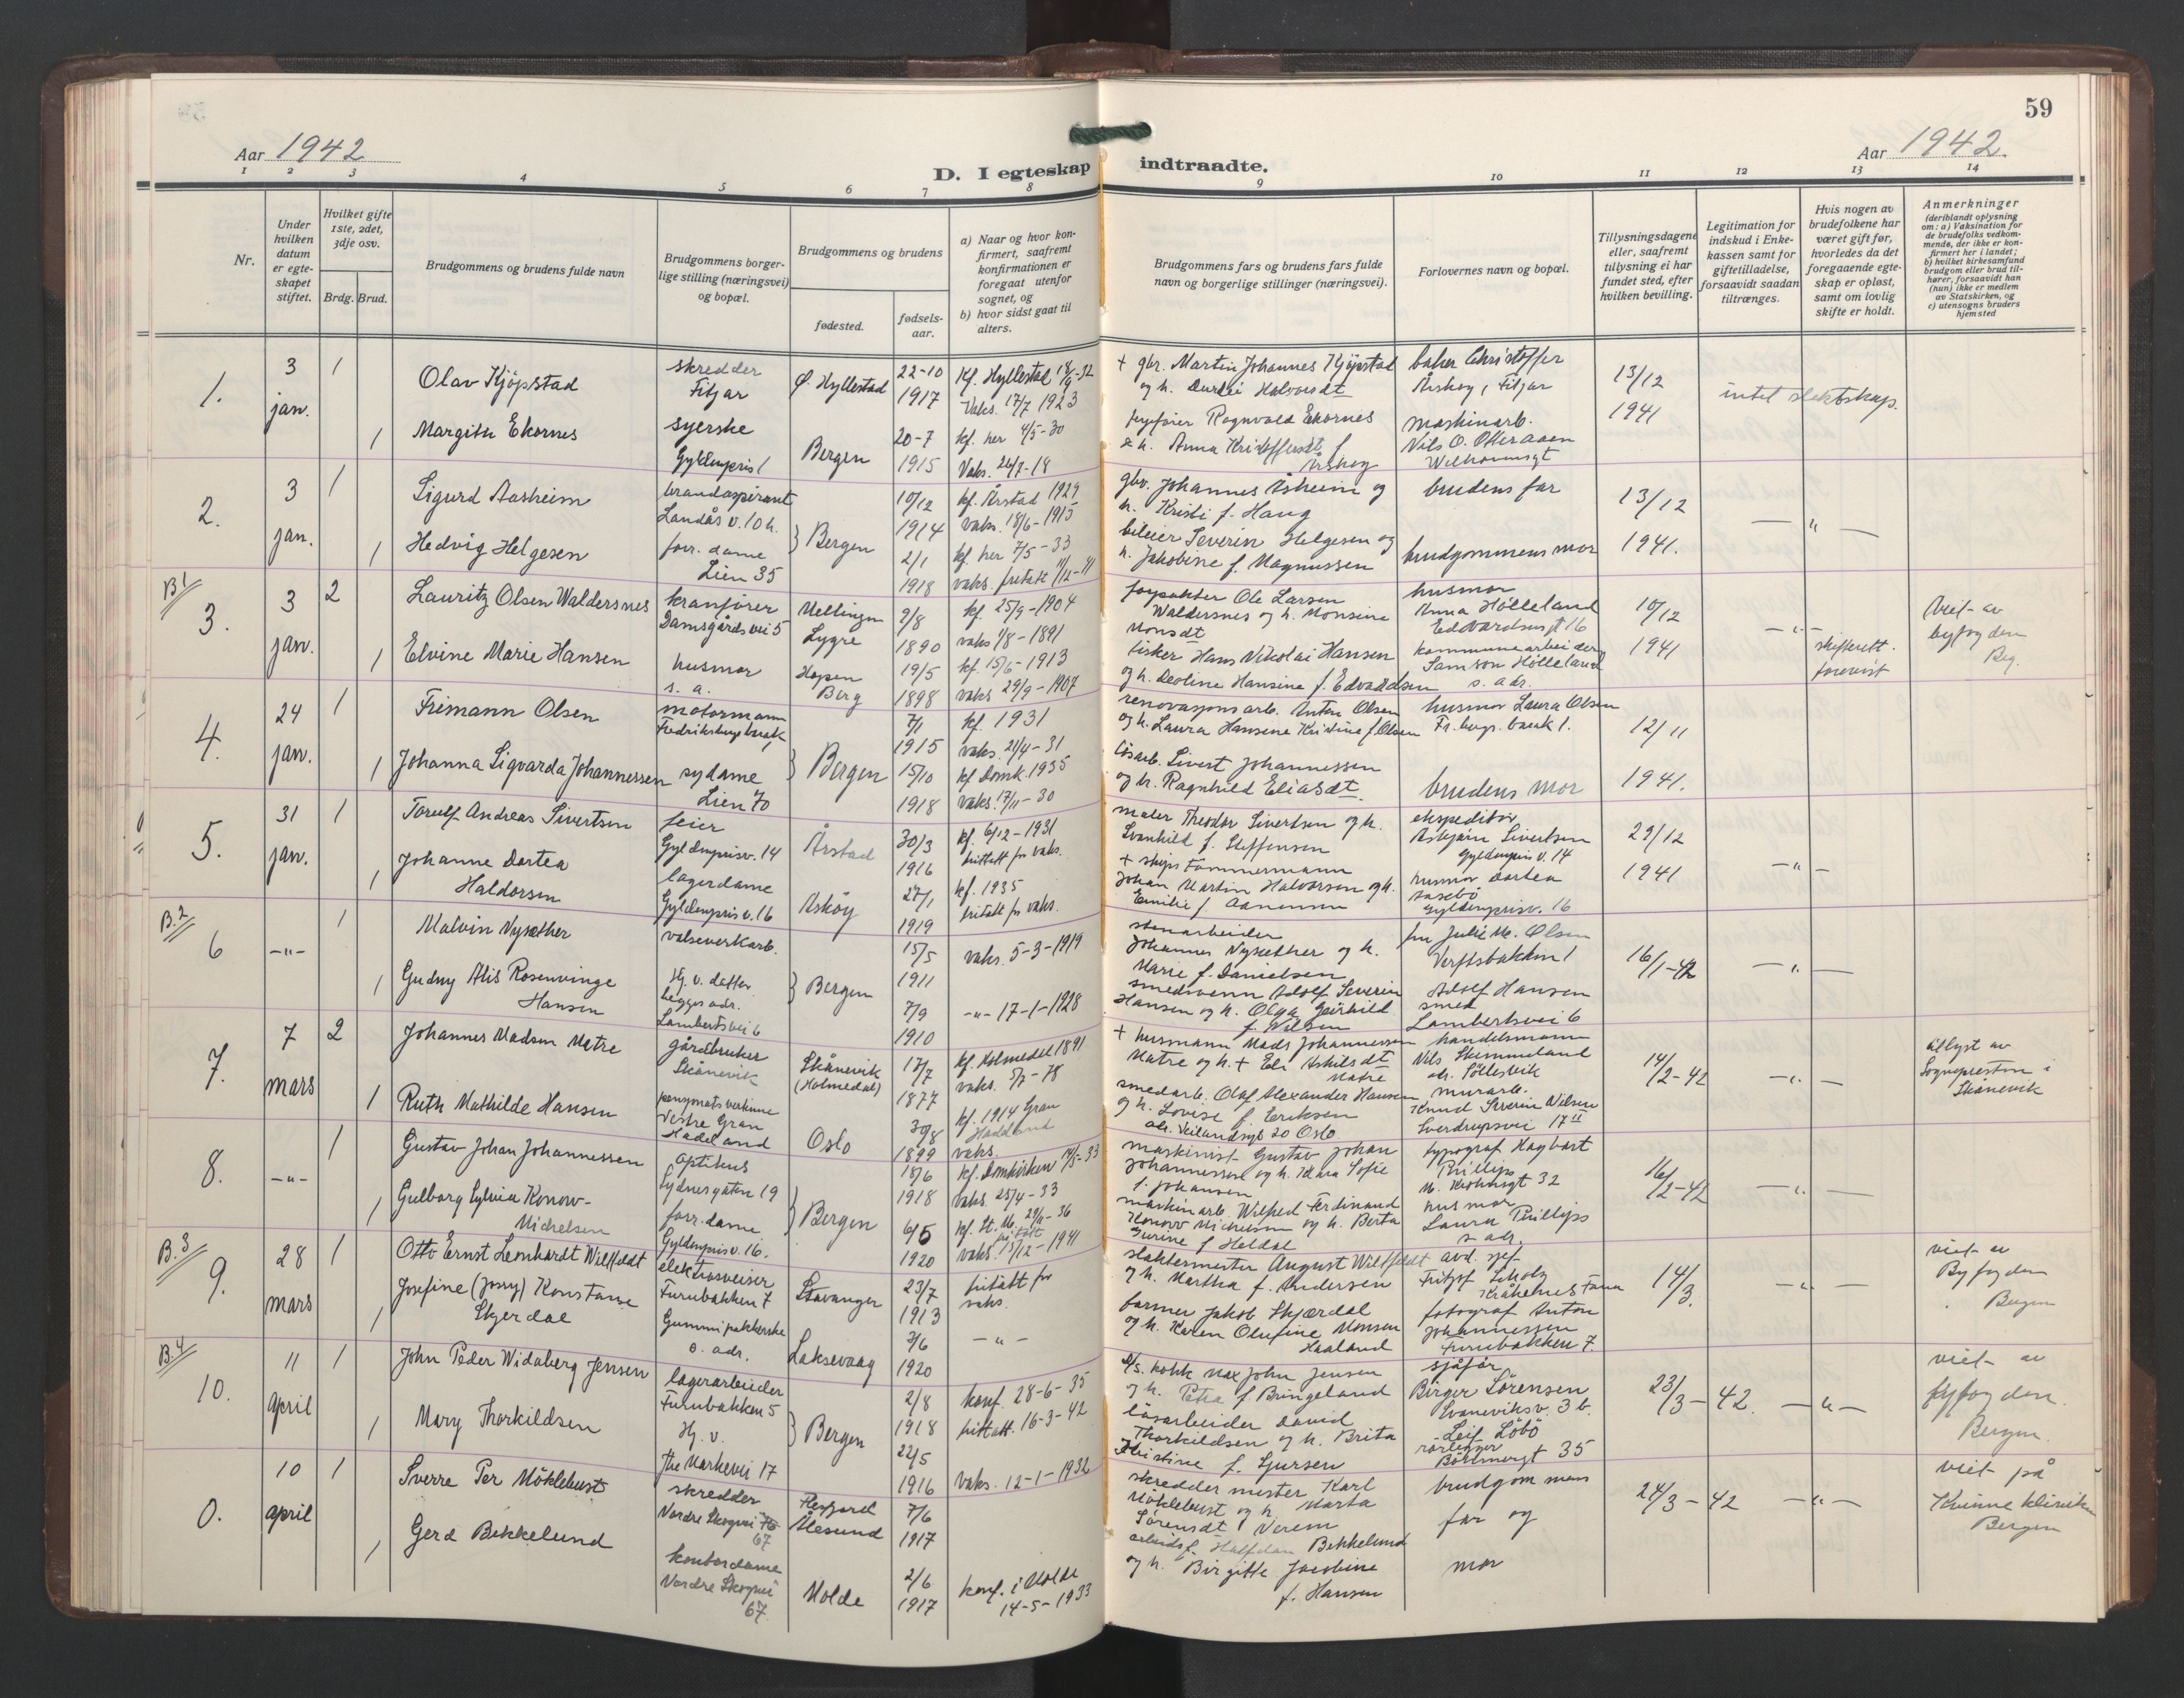 59
Aar 1942
D. I egteskap indtraadte.
Aar 1942.
1 2 3 4 5 6 7 8 9 10 11 12 13 14
Nr.
Under hvilken datum er egteskapet stiftet.
Hvilket gifte 1ste, 2det, 3dje osv.
Brdg. Brud.
Brudgommens og brudens fulde navn
Brudgommens borgerlige stilling (næringsvei) og bopæl.
Brudgommens og brudens
fødested.
fødselsaar.
a) Naar og hvor konfirmert, saafremt konfirmationen er foregaat utenfor sognet, og
b) hvor sidst gaat til alters.
Brudgommens fars og brudens fars fulde navn og borgerlige stillinger (næringsvei).
Forlovernes navn og bopæl.
Tillysningsdagene eller, saafremt tillysning ei har fundet sted, efter hvilken bevilling.
Legitimation for indskud i Enkekassen samt for giftetilladelse, forsaavidt saadan tiltrænges.
Hvis nogen av brudefolkene har været gift før, hvorledes da det foregaaende egteskap er opløst, samt om lovlig skifte er holdt.
Anmerkninger
(deriblandt oplysning om: a) Vaksination for de brudefolks vedkommende, der ikke er konfirmert her i landet; b) hvilket kirkesamfund brudgom eller brud tilhører, forsaavidt han (hun) ikke er medlem av Statskirken, og c) utensogns bruders hjemsted
1.
3 jan.
1
Olav Kjöpstad
skredder
Fitjar
Ø. Hyllestad
22-10
1917
Kf. Hyllestad 18/9-32
Vaks. 17/7 1923
+ gbr. Martin Johannes Kjöpstad
og h. Durdei Halvorsdt
baker Christoffer
Årskog, Fitjar
13/12
1941
intet slektskap.
1
Margith Ekornes
syerske
Gyldenpris 1
Bergen
20-7
1915
kf. her 4/5-30
Vaks. 26/7-18
Rognvald Ekornes
& h. Anna f
Årskog
maskinarb.
Nils O. Otteraaen
2.
3 jan.
1
Sigurd Aasheim
brandaspirant
Landås v. 10 h.
Bergen
10/12
1914
kf. Årstad 1929
vaks. 18/6-1915
gbr. Johannes Åsheim og
h. Kristi f. Haug
brudens far
13/12
1941.
— " —
1
Hedvig Helgesen
forr. dame
Lien 35
2/1
1918
kf. her 7/5-33
vaks. fritatt 11/12-41
bileier Severin Helgesen og
h. Jakobine f. Magnussen
brudgommens mor
B1
3.
3 jan.
2
Lauritz Olsen Waldersnes
kranfører
Damsgårdsvei 5
Mellingen
Lygre
9/8
1890
kf. 25/9-1904
vaks 1/8-1891
forpakter Ole Larsen
Waldersnes og h. Monsine
Monsdt
husmor
Anna Hölleland
Edvardsensgt 16
10/12
1941
— " —
skifterett. forevist
Viet av
byfogden
Brg.
1
Elvine Marie Hansen
husmor
s. a.
Hopen
Berg
19/5
1898
kf. 15/6-1913
vaks 29/9-1907
fisker Hans Nikolai Hansen
og h. Deoline Hansine f. Edvardsen
kommunearbeider
Samson Hölleland
s. adr.
4.
24 jan.
1
Frimann Olsen
motormann
Fredriksberg barak 1
Bergen
7/1
1915
kf. 1931
vaks. 21/4-31
renovasjonsarb. Anton Olsen
og h. Laura Hansene Kristine f. Olsen
husmor Laura Olsen
Fr. bergs. barak 1.
12/11
1941.
1
Johanna Sigvarda Johannessen
sydame
Lien 70
15/10
1918
kf Domk. 1935
vaks. 17/11-30
løsarb. Sivert Johannessen
og h. Ragnhild Eliasdt.
brudens mor
5.
31 jan.
1
Torulf Andreas Sivertsen
feier
Gyldenprisv. 14
Årstad
30/3
1916
kf. 6/12-1931
fritatt for vaks.
maler Theodor Sivertsen og h.
Svanhild f. Steffensen
ekspeditör
Asbjørn Sivertsen
Gyldenpris v. 14
29/12
1941
— " —
1
Johanne Dortea
Haldorsen
lagerdame
Gyldenprisv. 16
Askøy
27/1
1919
kf. 1935
fritatt for vaks.
+ skips tømmermann
Johan Martin Halvorsen og h.
Emilie f. Aanensen
husmor Dortea
Gyldenprisv. 16
B.2
6
-"-
1
Malvin Nysæther
valseverkarb.
Bergen
15/5
1911
vaks. 5-3-1919
stenarbeider
Johannes Nysæther og h.
Marie f. Danielsen
fru Julie M. Olsen
Verftsbakken 1
16/1-42
— " —
1
Gudny Alis Rosenvinge
Hansen
Hj. v. datter
begges adr.
Lambertsvei 6
7/9
1910
-"- 17-1-1928
smedsvenn Adolf Severin
Hansen og h. Olga Geirhild
f. Nilsen
Adolf Hansen
smed
Lambertsvei 6
7.
7 mars
2
Johannes Madsen Matre
gårdbruker
Skånevik
Skånevik
(Holmedal)
17/7
1877
kf. Holmedal 1891
vaks. 5/7-78
+ husmann Mads Johannessen
Matre og h. + Eli Askilsdt
Matre
handelsmann
Nils Skimmeland
adr. Söllesvik
14/2-42
— " —
Utlyst av
Sogneprestn i
Skånevik
1
Ruth Mathilde Hansen
pensjonatsvertinne
Vestre Gran
Hadeland
Oslo
30/8
1899
kf. 1914 Gran
Haddland
vaks.
smedarb. Olaf Alexander Hansen
og h. Lovise f. Eriksen
20 Oslo
murarb.
Knud Severin Nilsen
Sverdrupsvei 17 II
8.
-"-
1
Gustav Johan Johannessen
optikus
Sydnesgaten 19
Bergen
18/6
1918
kf. Domkirken 14/5-33
vaks. 25/4-33
maskinist Gustav Johan
Johannessen og h. Klara Sofie
f. Johansen
typograf Hagbart
Phillips
M. Krohnsgt 32
16/2-42
— " —
1
Gulborg Sylvia Konow-
Michelsen
forr. dame
Gyldenpris v. 16.
6/5
1920
kf. St. M. 29/11-36
fritatt
vaks. 15/12-1941
maskinarb. Wilfred Ferdinand
Konow Michelsen og h. Berta
Gurine f Heldal
husmor
Laura Phillips
s adr.
B.3
9.
28 mars
1
Otto Ernst Leonhardt Willfeldt
elektrosveiser
Furubakken 7
Stavanger
23/7
1913
fritatt for
vaks.
slaktermester August Willfeldt
og h. Martha f. Andersen
avd. sjef
Fritjof Scholz
Kråkenes Fana
14/3.
— " —
viet av
Byfogden
Bergen
1
Josefine (Jossy) Konstanse
Skjerdal
Gummi pakkerske
s. adr.
Laksevaag
7/6
1920
— " —
farmer Jakob Skjærdal
og h. Karen Olufine Monsen
Haaland
fotograf Anton
Johannessen
Furubakken 7
B.4
10.
11 April
1
John Peder Widnberg Jensen
lagerarbeider
Furubakken 5
Bergen
2/8
1918
konf. 28-6-35
fritatt. 16-3-42
d/s. kokk Max John Jensen
og h. Petra f Bringeland
sjåför
Birger Sörensen
Svaneviksv. 3 b.
23/3-42.
— " —
viet av
fyfogden.
Bergen.
1
Mary Thorkildsen
Hj. v.
fhe Markevei 17
22/5
1916
vaks. 12-1-1932
løsarbeider David
Thorkildsen og h. Brita
Kristine f. Sjursen
Leif Löbö
rørlegger
Bøhmergt 35
0.
10 april
1
Sverre Per Möklebust
skredder
Nordre Skogvei 76
67
Ålesund
7/6
1917
skredder mester Karl
Möklebust og h. Marta
Sørensdt Verem
brudgommens
far og
24/3-42
— " —
viet på
Kvinne kliniken
Bergen
1
Gerd Bekkelund
kontordame
Nordre Skogvei
67
Molde
2/6
1917
konf. i Molde
14-5-1933
arbeids f. Halfdan Bekkelund
og h. Birgitte Jacobine
f. Hansen
mor